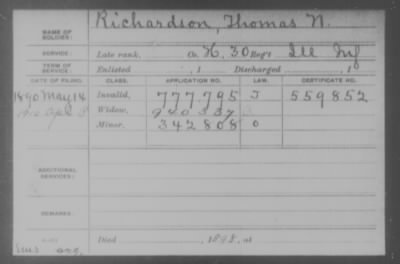 Richardson, Thomas N.
NAME OF SOLDIER:
SERVICE: Late rank, Co. H, 30 Reg't Ill Inf
TERM OF SERVICE: Enlisted , 1 Discharged , 1
DATE OF FILING. CLASS. APPLICATION NO. LAW. CERTIFICATE NO.
1890 May 14 Invalid, 777.795 J 559852
1910 Widow,
Minor, 342808 O
ADDITIONAL SERVICES:
REMARKS:
Died , 1898, at